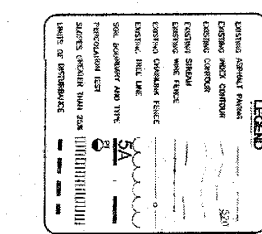 LEGEND
EXISTING ASPHALT PAVING
EXISTING INDEX CONTOUR 520
EXISTING CONTOUR
EXISTING STREAM
EXISTING WIRE FENCE
EXISTING CHAINLINK FENCE
EXISTING TREE LINE
SOIL BOUNDARY AND TYPE 5A
PERCOLATION TEST P1
SLOPES GREATER THAN 25%
LIMITS OF DISTURBANCE